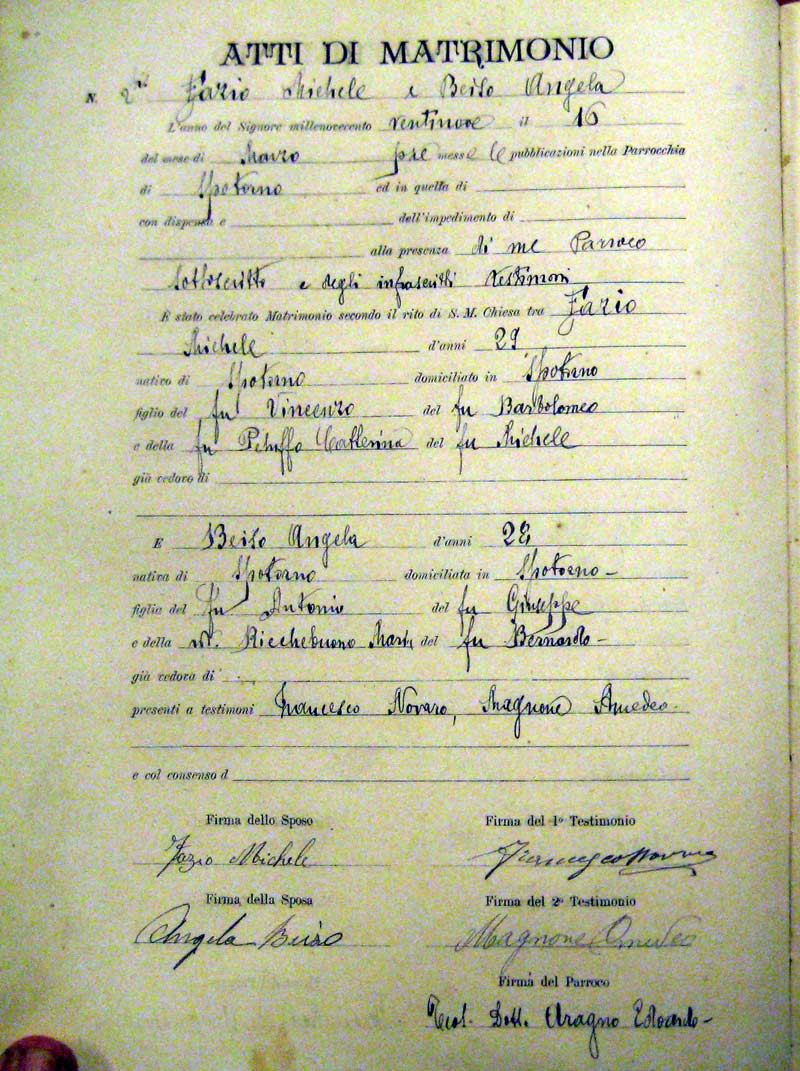 ATTI DI MATRIMONIO
N. 2 Fazio Michele e Beiso Angela
L'anno del Signore millenovecento ventinove il 16
del mese di Marzo premesse le pubblicazioni nella Parrocchia
di Spotorno ed in quella di
con dispensa e dell'impedimento di
alla presenza di me Parroco
sottoscritto e degli infrascritti testimoni
È stato celebrato Matrimonio secondo il rito di S. M. Chiesa tra Fazio
Michele d'anni 29
nativo di Spotorno domiciliato in Spotorno
figlio del fu Vincenzo del fu Bartolomeo
e della fu Catterina del fu Michele
già vedovo di
E Beiso Angela d'anni
nativa di Spotorno domiciliata in Spotorno -
figlia del fu Antonio del fu Giuseppe
e della Ricchebuono Maria del fu Bernardo -
già vedova di
presenti a testimoni Francesco Novaro, Magnone Amedeo -
e col consenso d
Firma dello Sposo Firma del 1º Testimonio
Fazio Michele Francesco Novaro
Firma della Sposa Firma del 2º Testimonio
Angela Beiso Magnone Amedeo
Firma del Parroco
Teol. Dott. Aragno Edoardo -